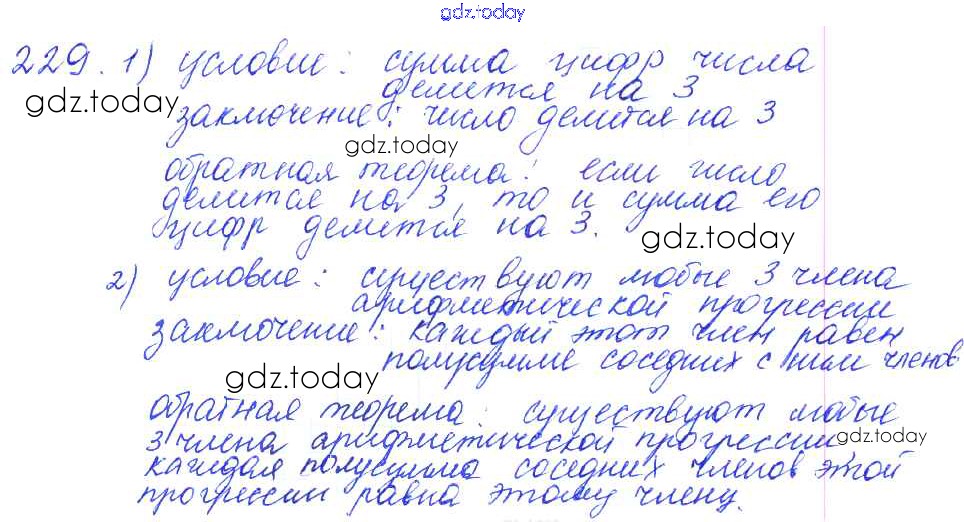 gdz.today
229. 1) условие: сумма цифр числа
делится на 3
gdz.today
заключение: число делится на 3
gdz.today
обратная теорема: если число
делится на 3, то и сумма его
цифр делится на 3.
gdz.today
2) условие: существуют любые 3 члена
арифметической прогрессии
заключение: каждый этот член равен
полусумме соседних с ним членов
gdz.today
обратная теорема: существуют любые
3 члена арифметической прогрессии
gdz.today
каждая полусумма соседних членов этой
прогрессии равна этому члену.